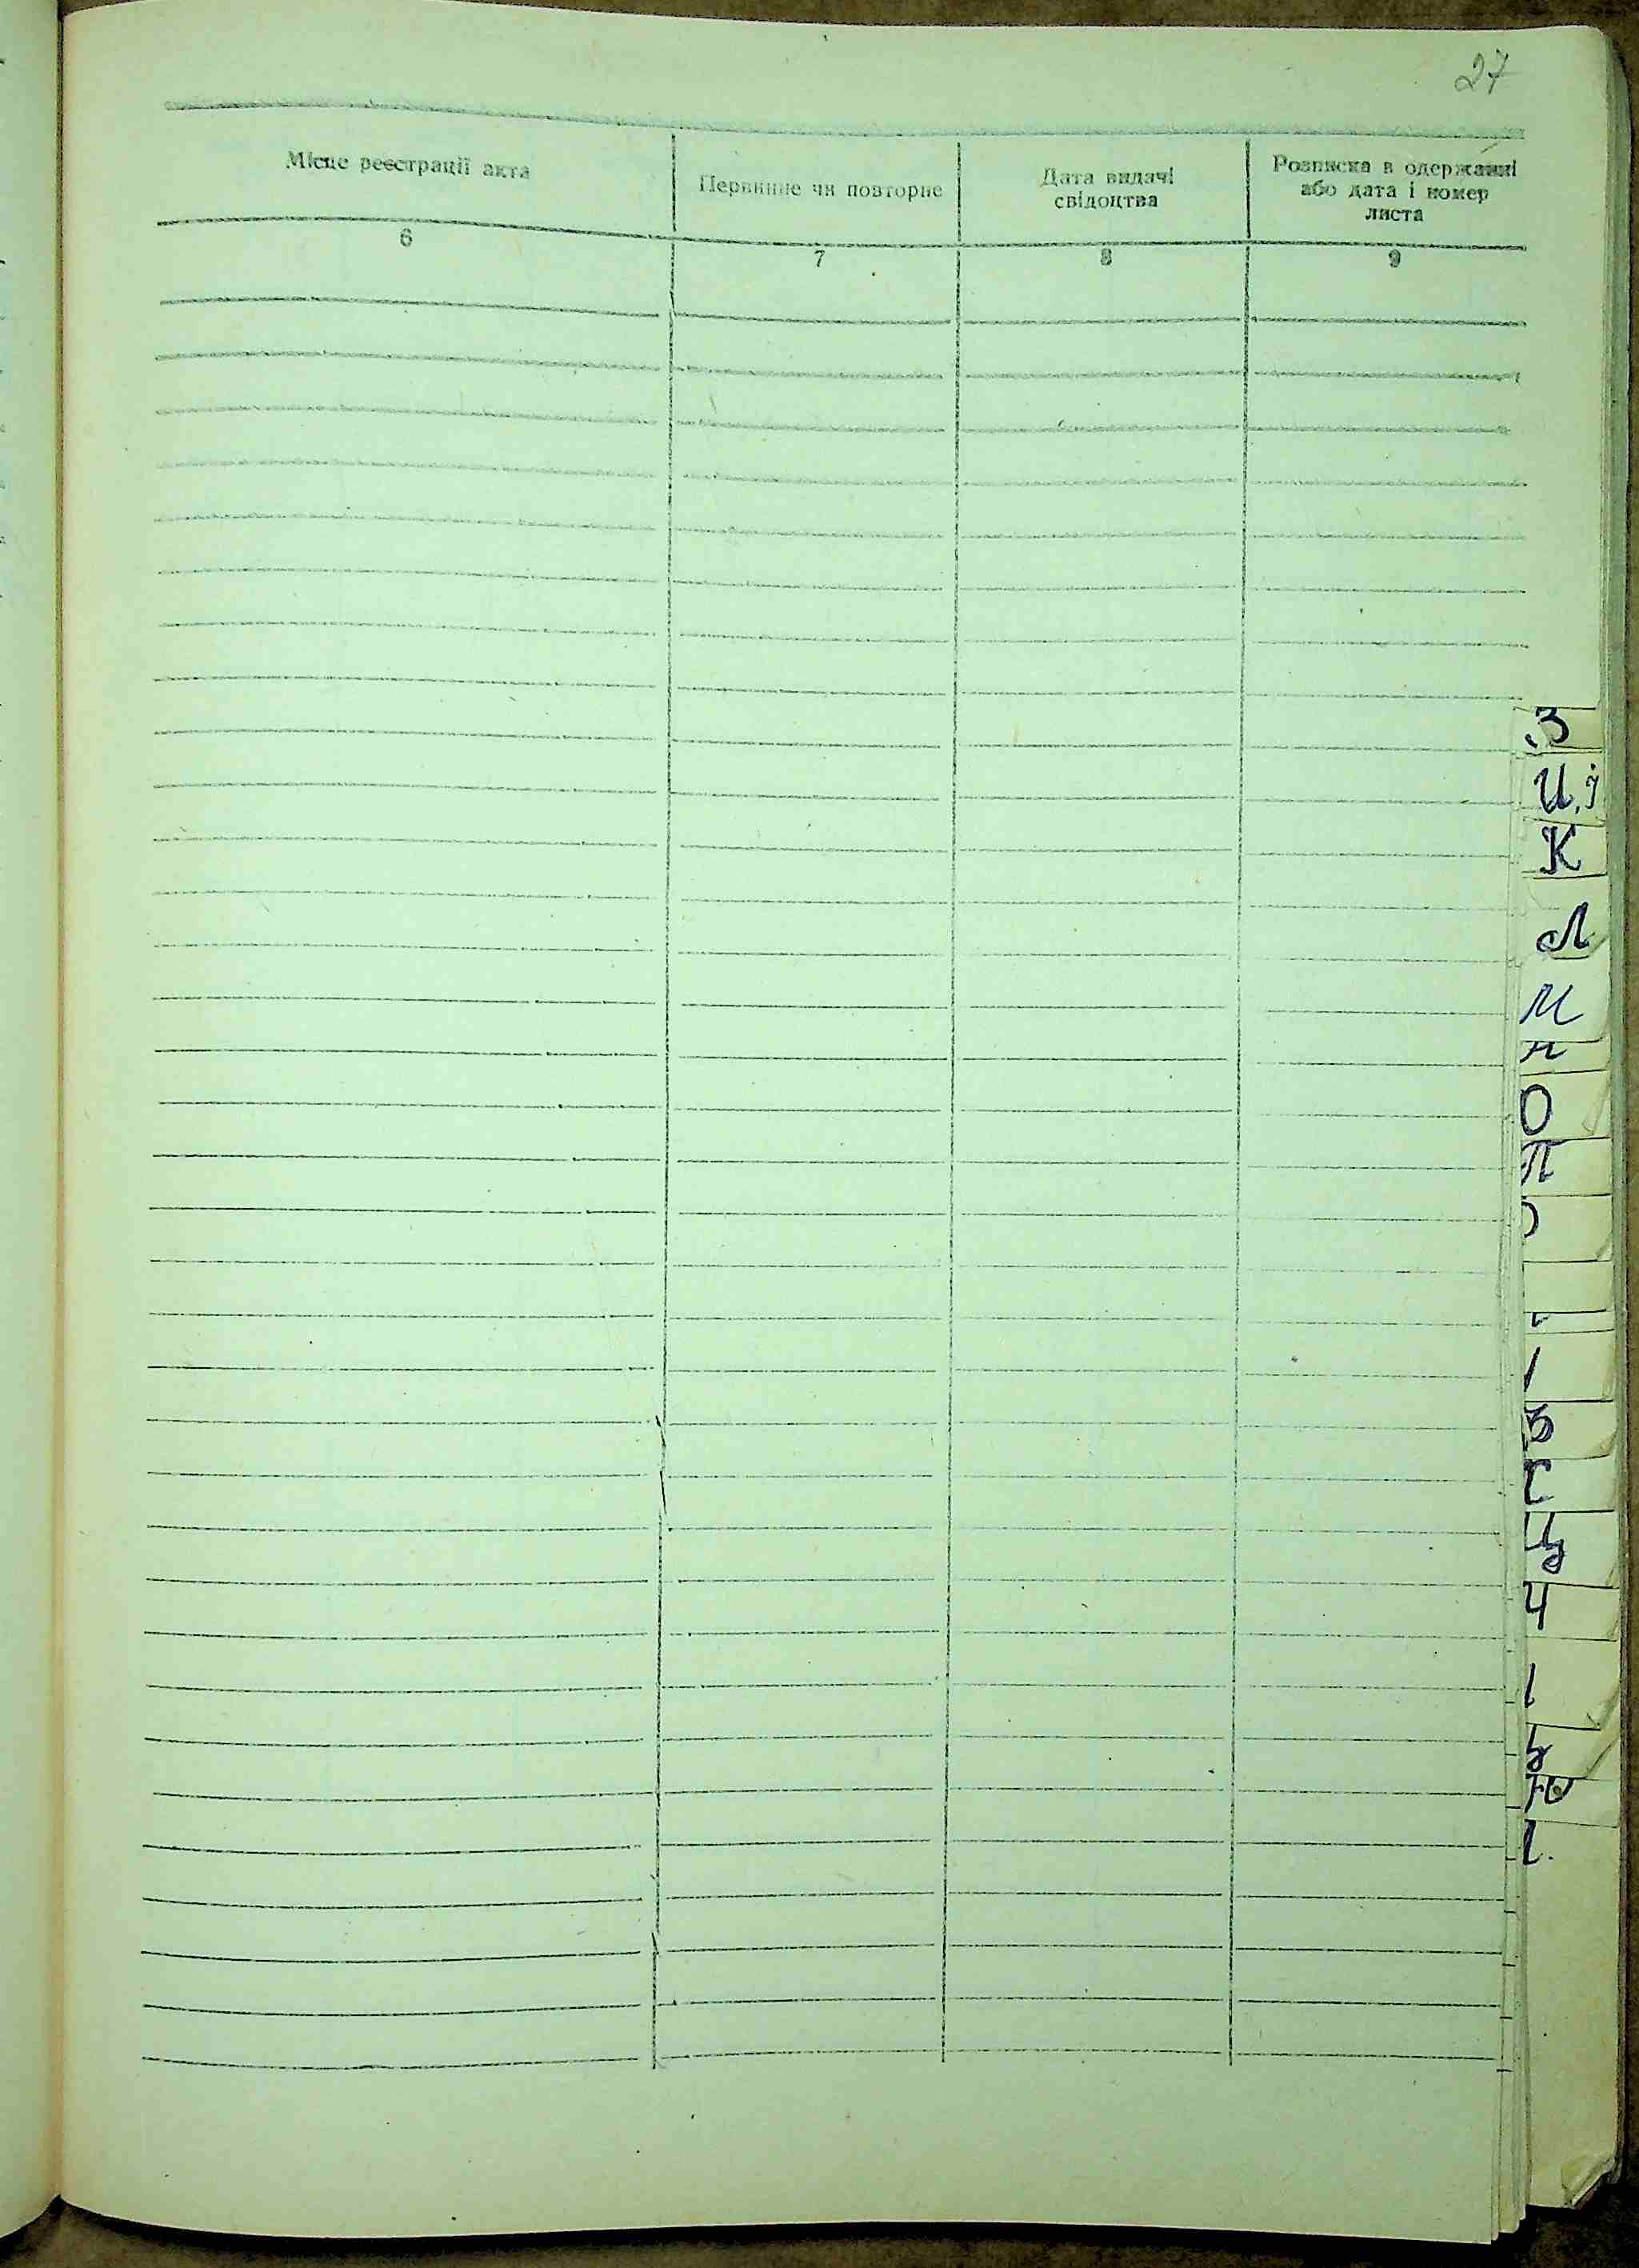 27
Місце реєстрації акта
Первинне чи повторне
Дата видачі
свідоцтва
Розписка в одержанні
або дата і номер
листа
6
7
8
9
З
И, і
К
Л
М
О
П
Ч
Ю